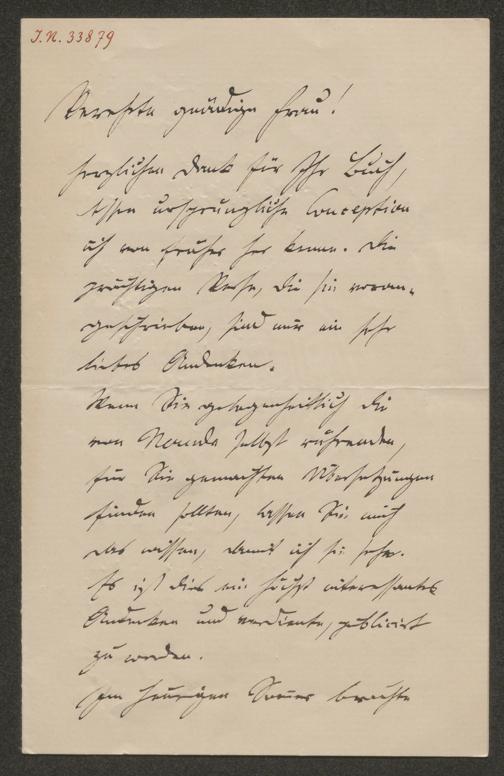 I.N. 33879
Verehrte gnädige Frau!
Herzlichen Dank für Ihr Buch,
dessen ursprüngliche Conception
ich von früher her kenne. Die
prächtigen Verse, die Sie voran-
geschrieben, sind mir ein sehr
liebes Andenken.
Wenn Sie gelegenheitlich die
von Neruda selbst rührenden,
für Sie gemachten Übersetzungen
finden sollten, lassen Sie mich
das wissen, damit ich sie sehe.
Es ist dies ein höchst interessantes
Andenken und verdiente, publicirt
zu werden.
Im heurigen Somer brachte